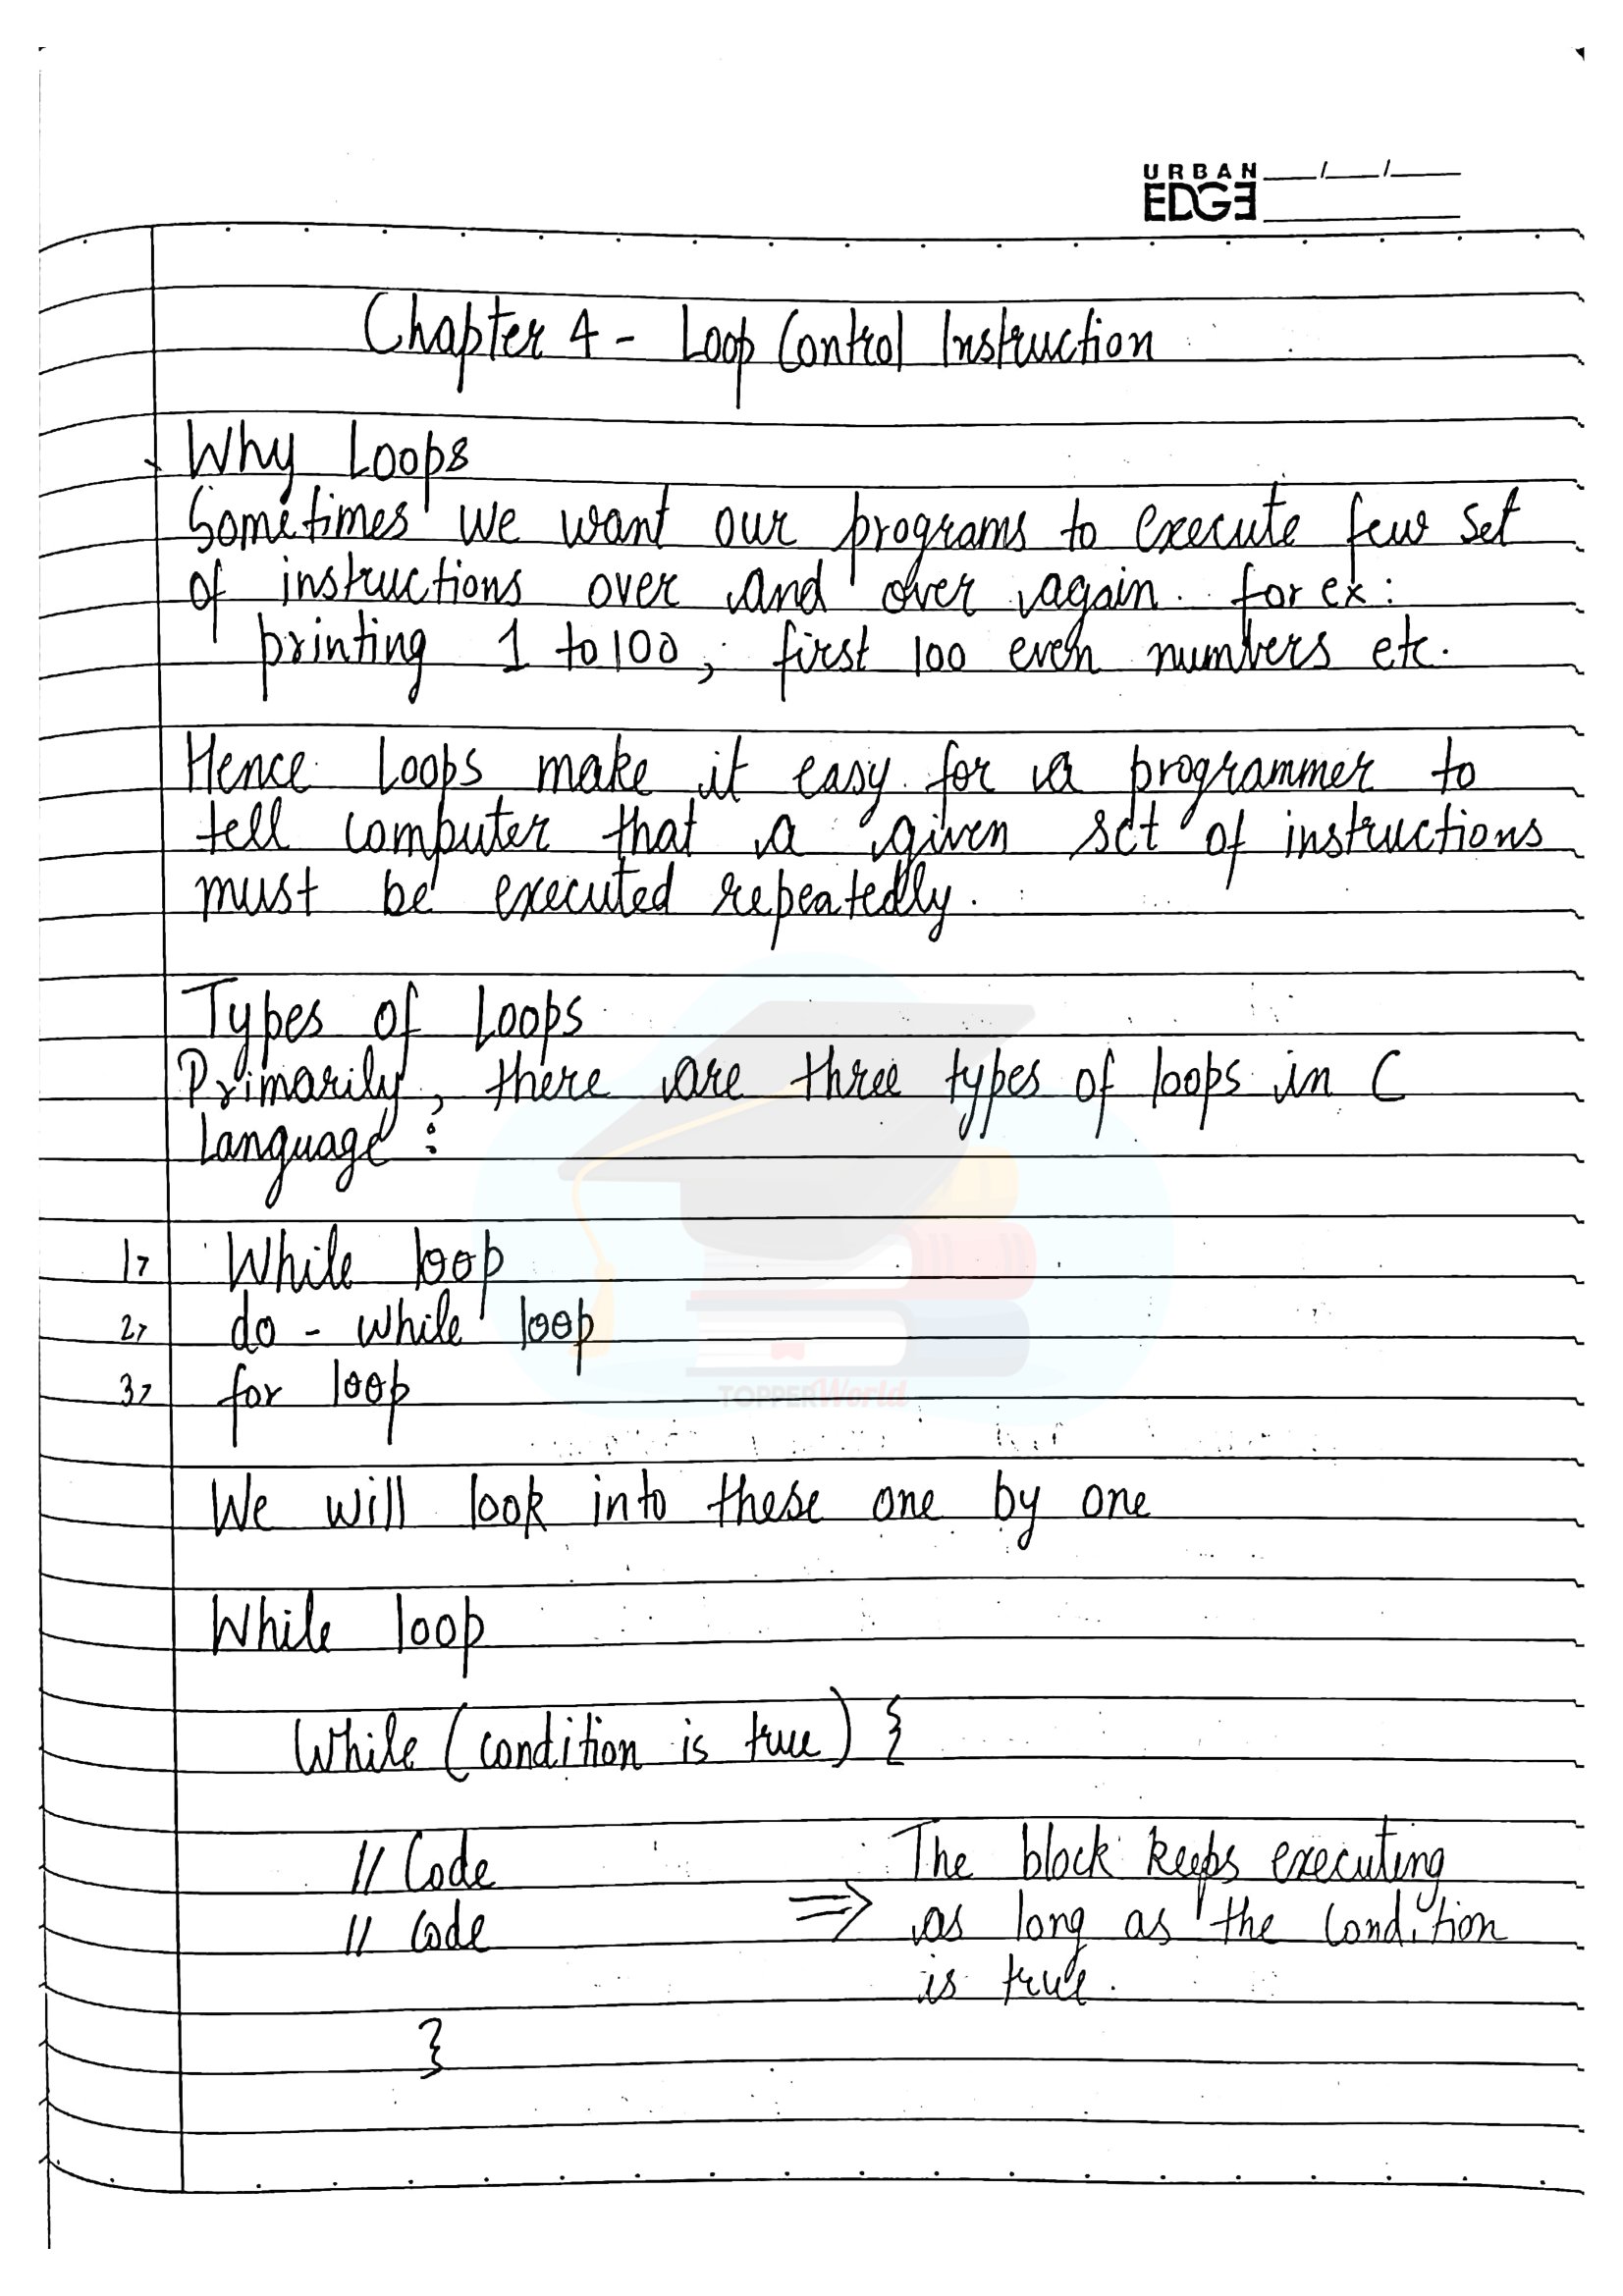 URBAN
EDGE
Chapter 4 - Loop Control Instruction
Why Loops
Sometimes we want our programs to execute few set
of instructions over and over again. for ex:
printing 1 to 100, first 100 even numbers etc.
Hence loops make it easy for a programmer to
tell computer that a given set of instructions
must be executed repeatedly.
Types of Loops
Primarily, there are three types of loops in C
language :
1> While loop
2> do - while loop
3> for loop
TOPPERWorld
We will look into these one by one
While loop
While (condition is true) {
// Code
// Code
⇒ The block keeps executing
as long as the condition
is true.
}